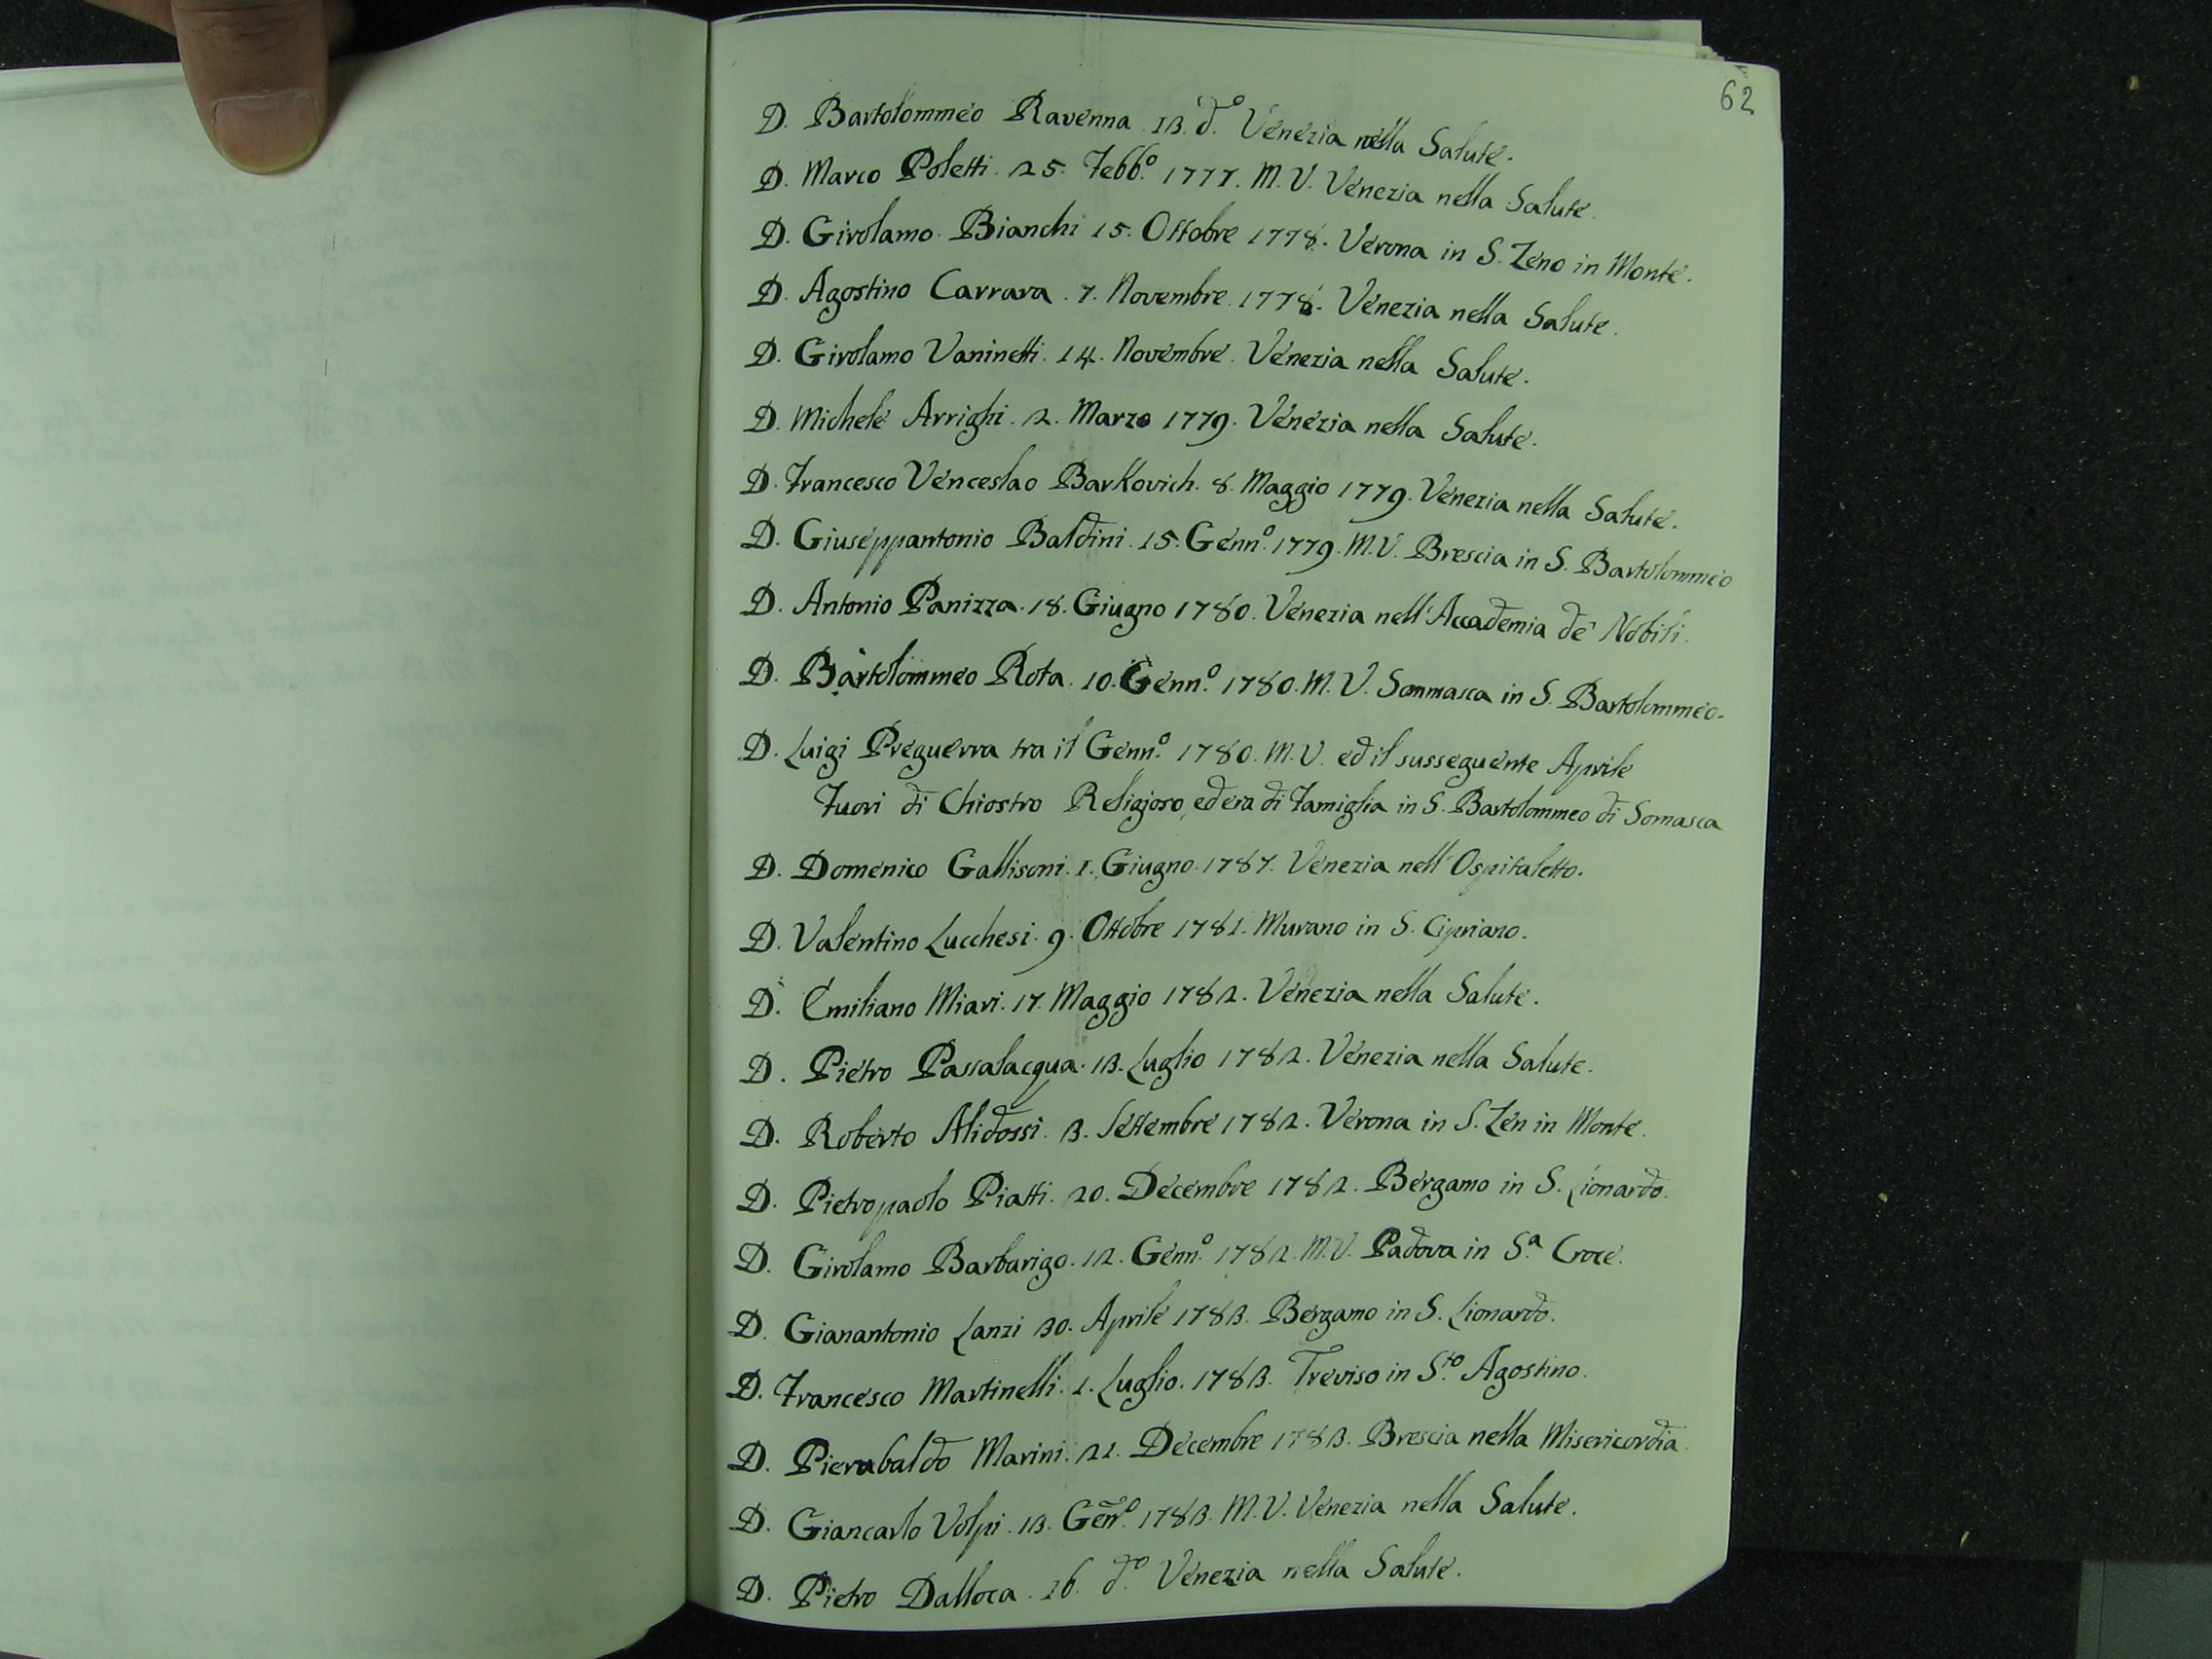 62
D. Bartolommeo Ravenna. 13. d.º Venezia nella Salute.
D. Marco Poletti. 25. Febb.º 1777. M. V. Venezia nella Salute.
D. Girolamo Bianchi 15. Ottobre 1778. Verona in S. Zeno in Monte.
D. Agostino Carrara. 7. Novembre. 1778. Venezia nella Salute.
D. Girolamo Vaninetti. 14. Novembre. Venezia nella Salute.
D. Michele Arrighi. 2. Marzo 1779. Venezia nella Salute.
D. Francesco Venceslao Barkovich. 8. Maggio 1779. Venezia nella Salute.
D. Giuseppantonio Baldini. 15. Genn.º 1779. M.V. Brescia in S. Bartolommeo
D. Antonio Panizza. 18. Giugno 1780. Venezia nell'Accademia de' Nobili.
D. Bartolommeo Rota. 10. Genn.º 1780. M. V. Sommasca in S. Bartolommeo.
D. Luigi Preguerra tra il Genn.º 1780. M.V. ed il susseguente Aprile
Fuori di Chiostro Religioso, ed era di Famiglia in S. Bartolommeo di Somasca
D. Domenico Gallisoni. 1. Giugno. 1781. Venezia nell'Ospitaletto.
D. Valentino Lucchesi. 9. Ottobre 1781. Murano in S. Cipriano.
D. Emiliano Miari. 17. Maggio 1782. Venezia nella Salute.
D. Pietro Passalacqua. 13. Luglio 1782. Venezia nella Salute.
D. Roberto Alidossi. 3. Settembre 1782. Verona in S. Zen in Monte.
D. Pietropaolo Piatti. 20. Decembre 1782. Bergamo in S. Lionardo.
D. Girolamo Barbarigo. 12. Genn.º 1782. M.V. Padova in S.ª Croce.
D. Gianantonio Lanzi 30. Aprile 1783. Bergamo in S. Lionardo.
D. Francesco Martinelli. 1. Luglio. 1783. Treviso in S.to Agostino.
D. Pierubaldo Marini. 21. Decembre 1783. Brescia nella Misericordia.
D. Giancarlo Volpi. 13. Gen.º 1783. M.V. Venezia nella Salute.
D. Pietro Dalloca. 16. d.º Venezia nella Salute.